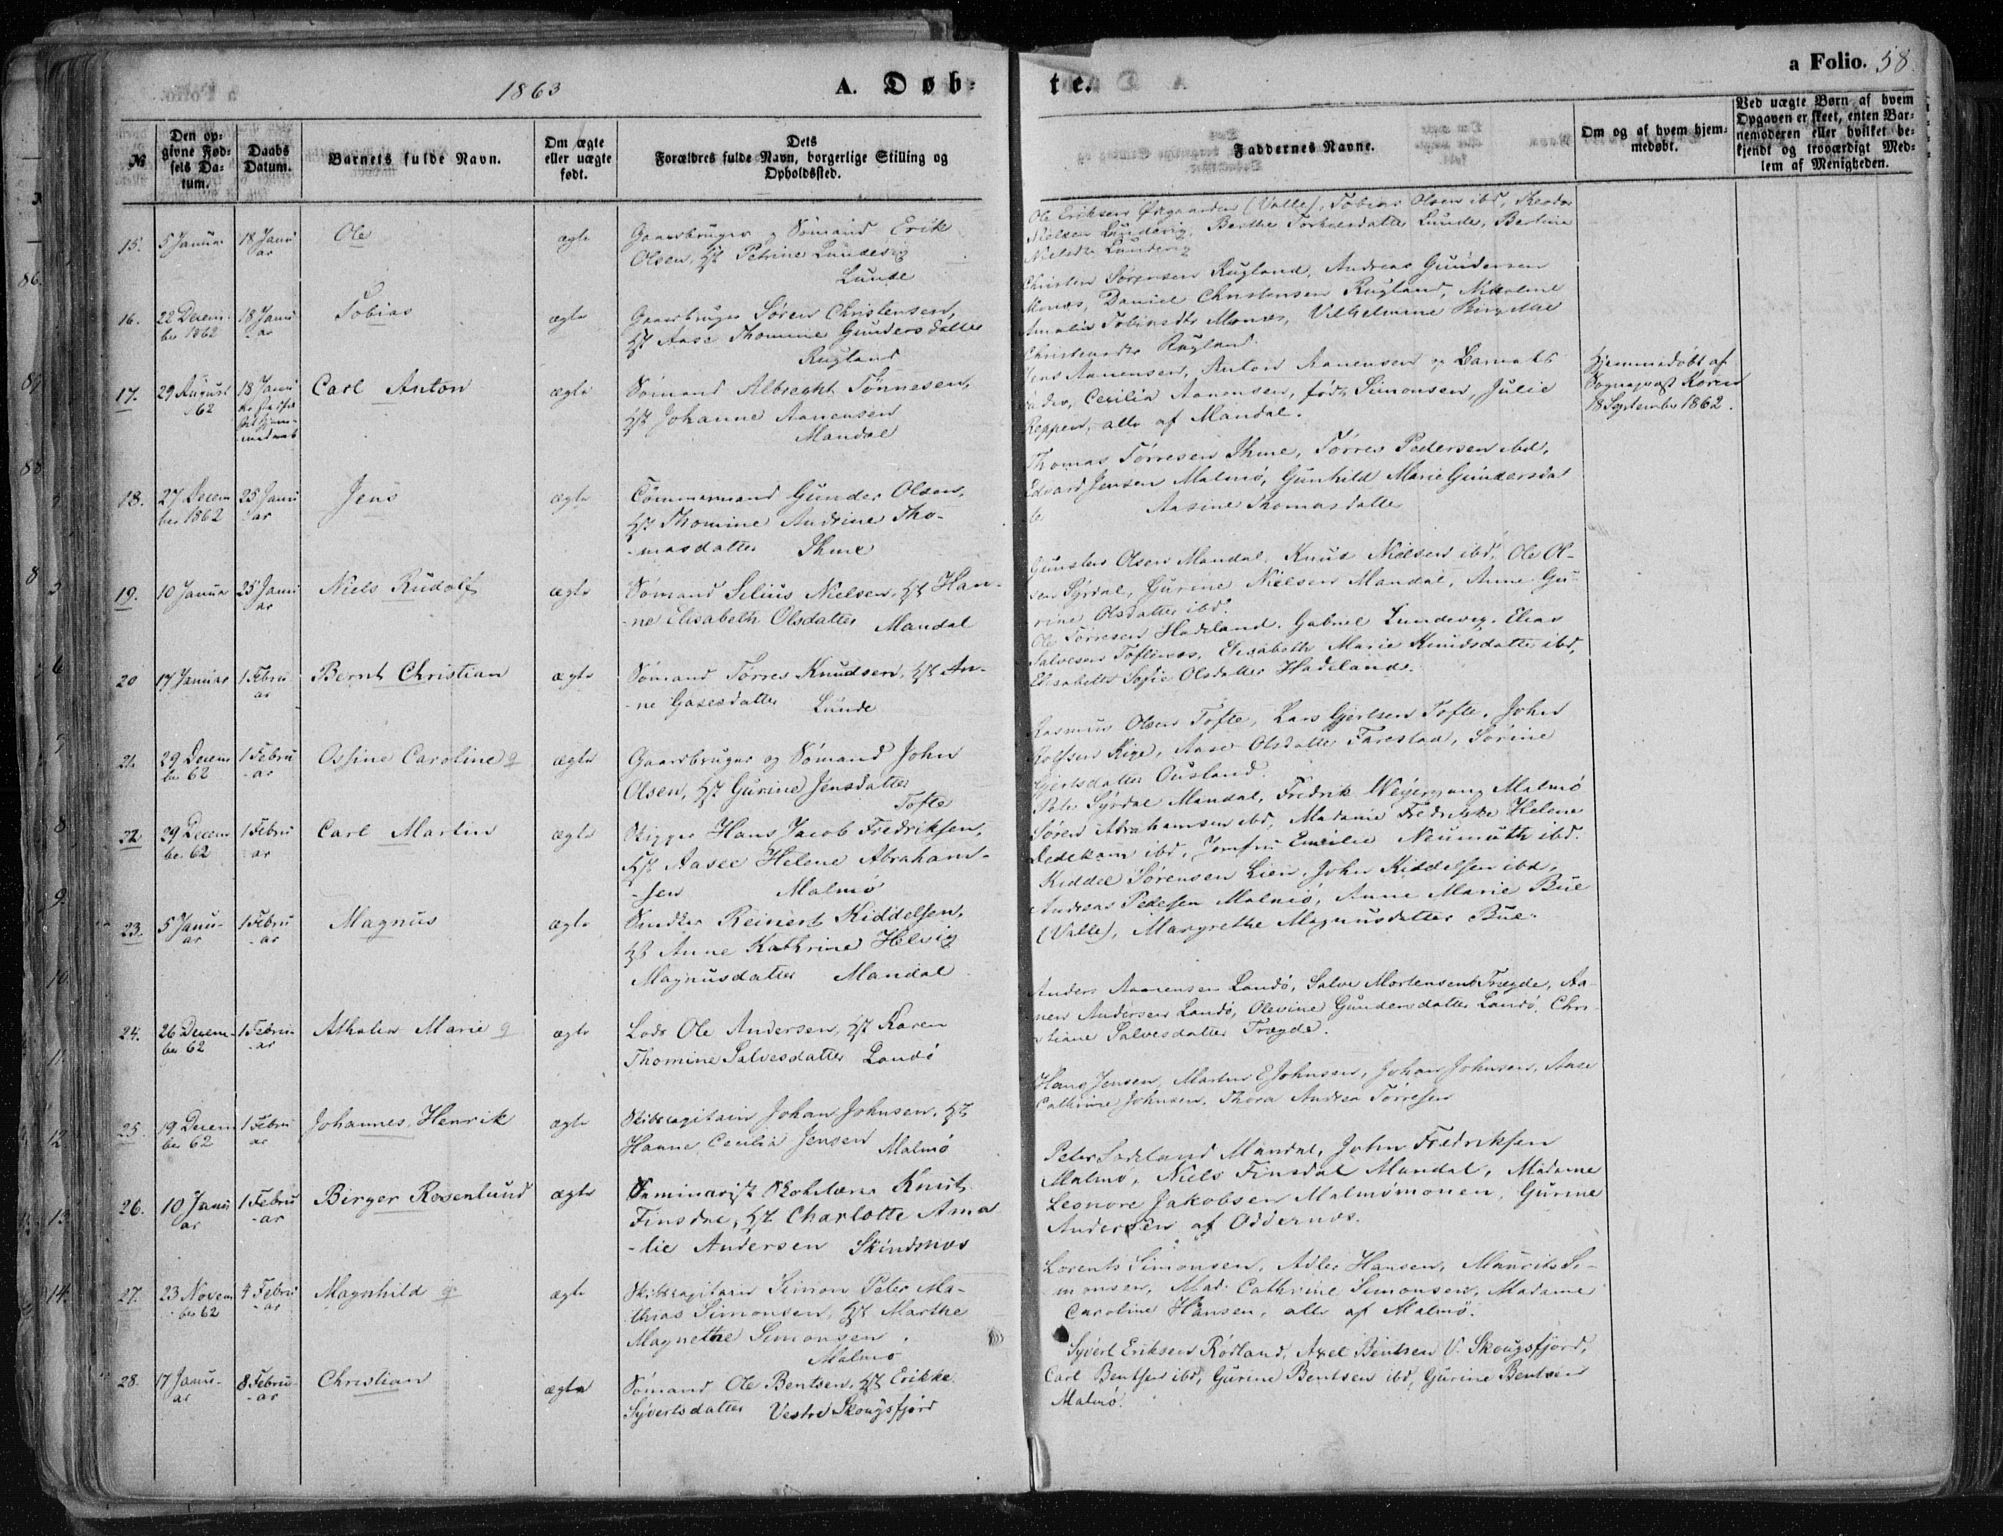 1863
A. Døb-
te.
a Folio. 58.
№
Den op-
givne Fød-
sels Da-
tum.
Daabs
Datum.
Barnets fulde Navn.
Om ægte
eller uægte
født.
Dets
Forældres fulde Navn, borgerlige Stilling og
Opholdssted.
Faddernes Navne.
Om og af hvem hjem-
medøbt.
Ved uægte Børn af hvem
Opgaven er skeet, enten Bar-
nemoderen eller hvilket be-
kjendt og troværdigt Med-
lem af Menigheden.
15. 5 Januar 18 Janu
ar
Ole
ægte
Gaardbruger og Sømand Erik
Olsen, Petrine Lundevig
Lunde
Ole Eriksen (Valle), Tobias Olsen ibd,
Nielsen Lundevig, Berthe Torkelsdatter Lunde, Bertine
Lundevig
16. 22 Decem-
ber 1862
18 Janu
ar
Tobias
ægte
Gaardbruger Søren Christensen,
Aase Thomine Gundersdatter
Rugland
Christen Sørensen Rugland, Andreas Gundersen
Daniel Christensen Rugland,
Amalia Vilhelmine
Rugland
17. 29 August
62
18 Janu
ar
Carl Anton
ægte
Sømand Albrecht Tønnesen,
Johanne Aanensen
Mandal
Jens Aanensen, Anton Aanensen og
Cecilia Aanensen, født Simonsen, Julie
Reppen, alle af Mandal.
Hjemmedøbt af
Sognepræst Koren
18 September 1862.
18. 27 Decem
ber 1862
25 Janu
ar
Jens
ægte
Tømmermand Gunder Olsen,
Thomine Andrine Tho-
-masdatter Ihme
Thomas Tørresen Ihme, Tørres Pedersen ibd,
Edvard Jensen Malmø, Gunhild Marie Gundersdat
ter Aasine Thomasdatter
19. 10 Januar 25 Janu
ar
Niels Rudolf
ægte
Sømand Silius Nielsen, Han-
-ne Elisabeth Olsdatter Mandal
Olsen Mandal, Knud Nielsen ibd, Ole Ol-
sen Syrdal, Gurine Nielsen Mandal, Anne Gu-
rine Olsdatter ibd.
20 17 Januar 1 Febru
-ar
Bernt Christian
ægte
Sømand Tørres Knudsen, An-
-ne Gasesdatter Lunde
Ole Tørresen Hadeland, Gabriel Lundevig, Elias
Salvesen Toftenes, Elisabeth Marie Knudsdatter ibd,
Elisabeth Sofie Olsdatter Hadeland.
21. 29 Decem
ber 62
1 Febru
-ar
Ossine Caroline
ægte
Gaardbruger og Sømand John
Olsen, Gurine Jensdatter
Tofte
Rasmus Olsen Tofte, Lars Gjertsen Tofte, John
Rolfsen Kige, Aase Olsdatter Farestad, Sorine
Gjertsdatter Ousland.
22. 29 Decem
ber 62
1 Febru
ar
Carl Martin
ægte
Skipper Hans Jacob Fredriksen,
Aasee Helene Abraham-
-sen Malmø
Syrdal Mandal, Fredrik Weyergang Malmø
Søren Abrahamsen ibd, Madame Fredrikke Helene
Dedekam ibd, Jomfru Emilie Neumuth ibd.
23. 5 Janu-
ar
1 Febru
-ar
Magnus
ægte
Smedker Reinert Kiddelsen,
Anne Kathrine Helvig
Magnusdatter Mandal
Kiddel Sørensen Lien, John Kiddelsen ibd,
Andreas Pedersen Malmø, Anne Marie Bue
(Valle), Margrethe Magnusdatter Bue.
24. 26 Decem-
ber 62
1 Febru
-ar
Athalia Marie
ægte
Lods Ole Andersen, Karen
Thomine Salvesdatter Landø
Anders Aanensen Landø, Salve Mortensen Trægde, Aa-
nen Andersen Landø, Olevine Gundersdatter Landø, Chri-
stiane Salvesdatter Trægde.
25. 19 Decem
ber 62
1 Febru
ar
Johannes Henrik
ægte
Skibscapitain Johan Johnsen,
Hanne Cecilia Jensen Malmø
Hans Jensen, Martin E Johnsen, Johan Johnsen, Aase
Cathrine Johnsen, Thora Andrea Tørresen
26. 10 Janu
ar
1 Febru
-ar
Birger Rosenlund
ægte
Seminarist Skolelærer Knut
Finsdal, Charlotte Ama
-lie Andersen Skindsnæs
Peter Sodeland Mandal, John Fredriksen
Malmø, Niels Finsdal Mandal, Madame
Leonore Jakobsen Malmømonen, Gurine
Andersen af Oddernæs.
27. 23 Novem
ber 62
4 Febru
-ar
Magnhild
ægte
Skibscapitain Simon Peter Ma-
thias Simonsen, Marthe
Magnethe Simonsen
Malmø
Lorents Simonsen, Adler Hansen, Maurits Si-
monsen, Mad. Cathrine Simonsen, Madame
Caroline Hansen, alle af Malmø.
28. 17 Janu-
ar
8 Febru
-ar
Christian
ægte
Sømand Ole Bentsen, Erikke
Syvertsdatter Vestre Skougsfjord
Syvert Eriksen Rødland, Axel Bentsen V. Skougsfjord,
Carl Bentsen ibd, Gurine Bentsen ibd, Gurine Bentsen
Malmø.